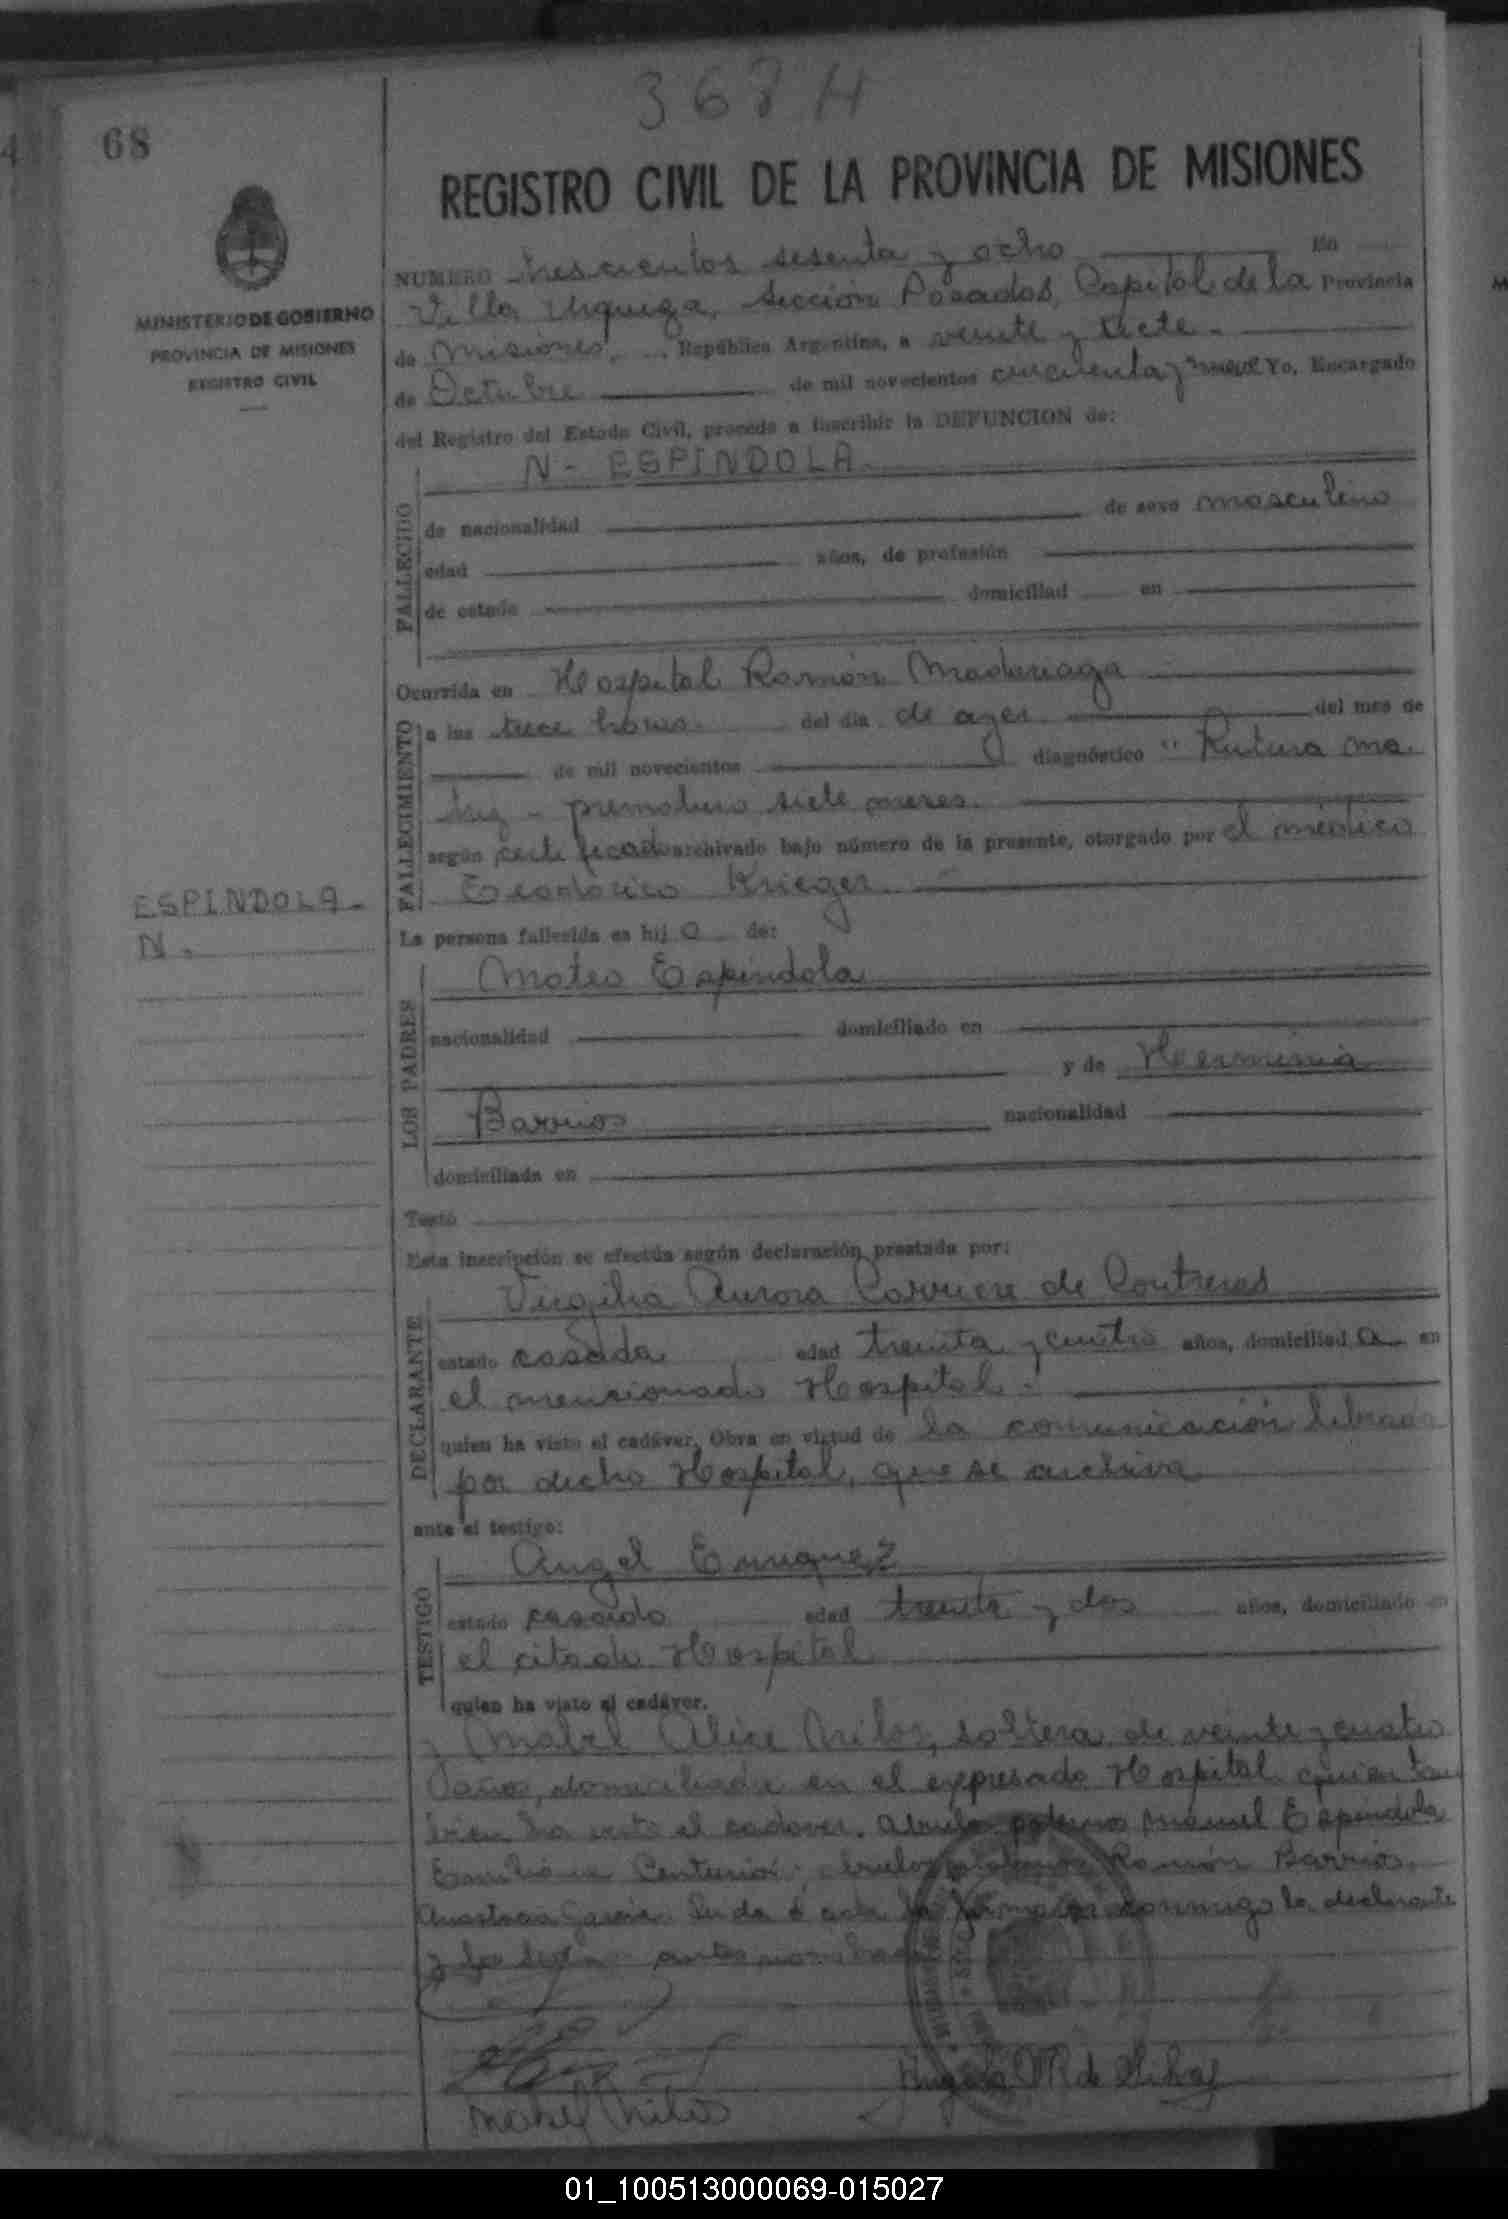 368 H
68
REGISTRO CIVIL DE LA PROVINCIA DE MISIONES
MINISTERIO DE GOBIERNO
PROVINCIA DE MISIONES
REGISTRO CIVIL
NUMERO trescientos sesenta y ocho En
Villa Urquiza, Sección Posadas, Capital de la Provincia
de Misiones, República Argentina, a veinte y siete
de Octubre de mil novecientos cincuenta y nueve Yo, Encargado
del Registro del Estado Civil, procedo a inscribir la DEFUNCION de:
N - ESPINDOLA
FALLECIDO
de nacionalidad de sexo masculino
edad años, de profesión
de estado domiciliad en
Ocurrida en Hospital Ramón Madariaga
FALLECIMIENTO
a las trece horas. del día de ayer del mes de
de mil novecientos diagnóstico " Rutura ma
triz - prematuro siete meses.
según certificado archivado bajo número de la presente, otorgado por el médico
Teodorico Krieger.
ESPINDOLA -
N.
La persona fallecida es hij o de:
LOS PADRES
Mateo Espindola
nacionalidad domiciliado en
y de Herminia
Barrios nacionalidad
domiciliada en
Texto
Esta inscripción se efectúa según declaración prestada por:
DECLARANTE
Virgilia Aurora Carriere de Contreras
estado casada edad treinta y cuatro años, domiciliad a en
el mencionado Hospital.
quien ha visto el cadáver. Obra en virtud de la comunicación librada
por dicho Hospital, que se archiva
ante el testigo:
TESTIGO
Angel Enriquez
estado casado edad treinta y dos años, domiciliado en
el citado Hospital
quien ha visto el cadáver.
y Mabel Alice soltera, de veinte y cuatro
años, domiciliada en el expresado Hospital quien tam
bien ha visto el cadaver. Abuelos paternos Manuel Espindola
Centurion; abuelos maternos Ramón Barrios,
Anastacia Garcia. Leida el acta la firmaron conmigo la declarante
y los testigos antes nombrados
Mabel
Angela M. de
01_100513000069-015027